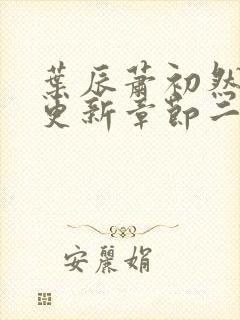 葉辰蕭初然
更新章節二
安麗娟